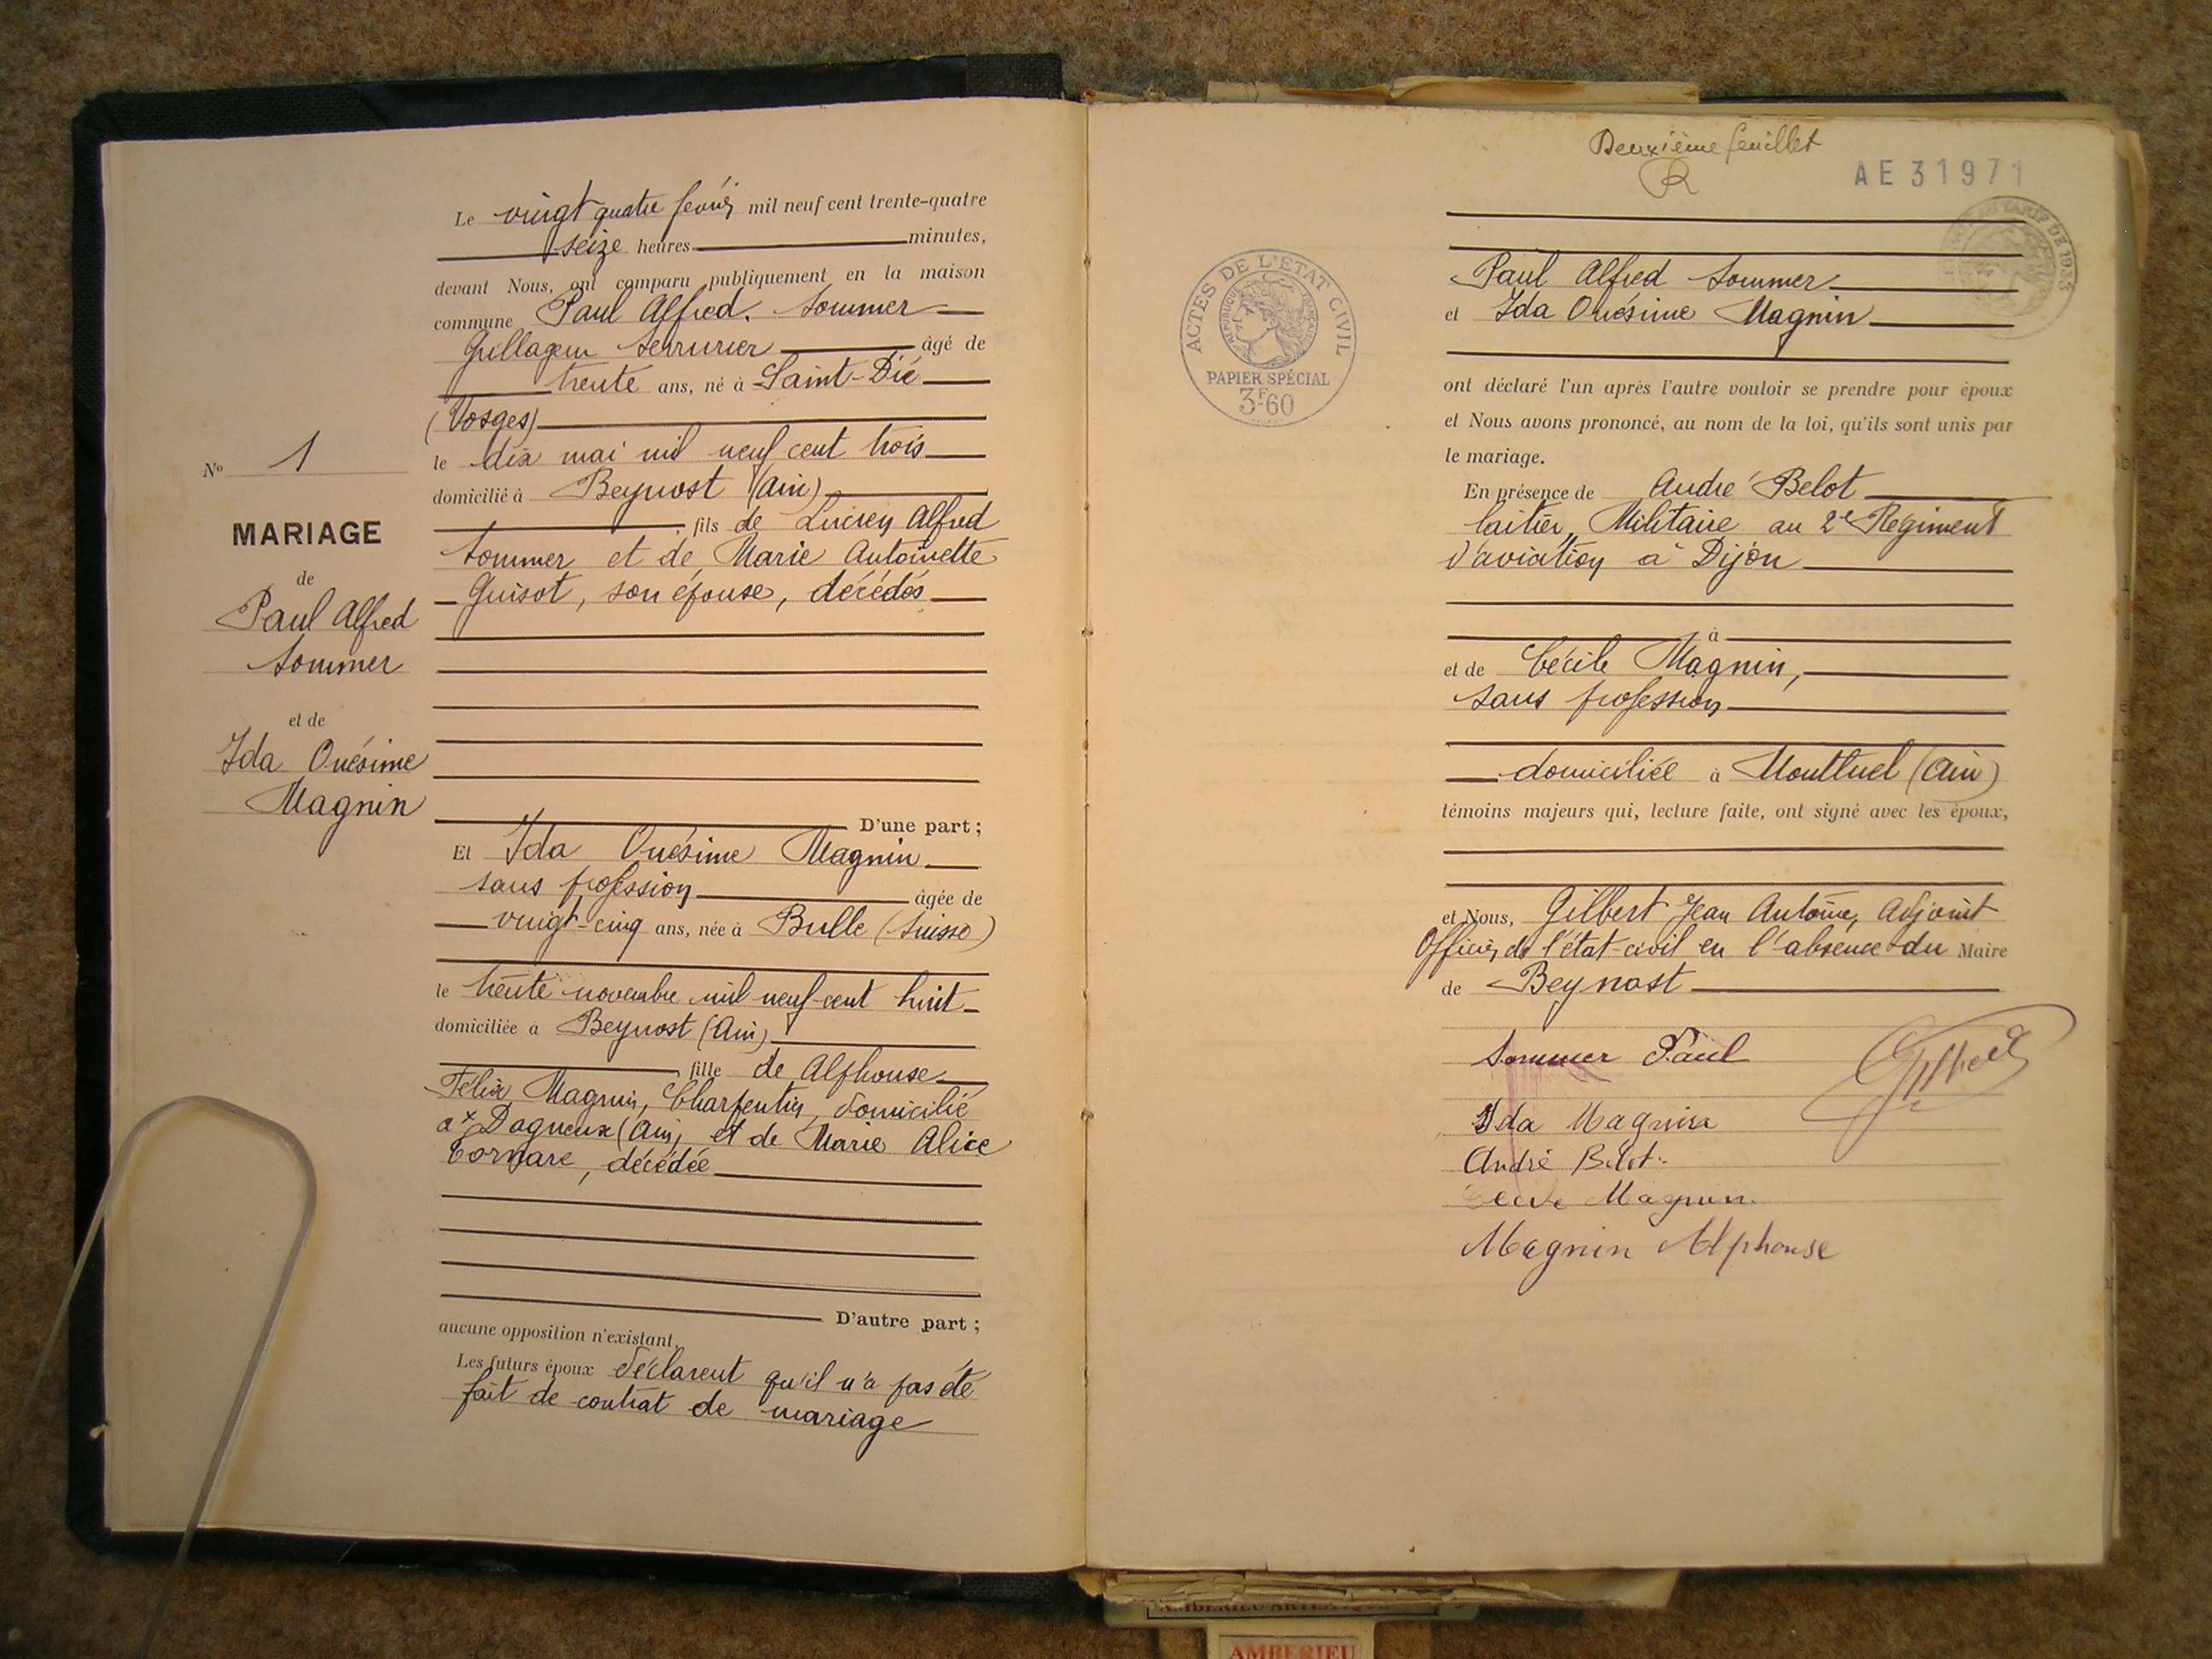 Le vingt quatre février mil neuf cent trente-quatre
seize heures minutes,
devant Nous, ont comparu publiquement en la maison
commune Paul Alfred Sommer
Grillageur Serrurier âgé de
trente ans, né à Saint-Dié
(Vosges)
le dix mai mil neuf cent trois
domicilié à Beynost (Ain)
, fils de Lucien Alfred
Sommer et de Marie Antoinette
Guisot, son épouse, décédés
D'une part ;
Et Ida Onésime Magnin
sans profession âgée de
vingt-cinq ans, née à Bulle (Suisse)
le trente novembre mil neuf cent huit
domiciliée à Beynost (Ain)
, fille de Alphonse
Félix Magnin, Charpentier, domicilié
à Dagneux (Ain) et de Marie Alice
Cornare, décédée
D'autre part ;
aucune opposition n'existant.
Les futurs époux déclarent qu'il n'a pas été
fait de contrat de mariage
No 1
MARIAGE
de
Paul Alfred
Sommer
et de
Ida Onésime
Magnin
Deuxième feuillet
R
AE 31971
ACTES DE L'ETAT CIVIL
REPUBLIQUE FRANÇAISE
PAPIER SPÉCIAL
3F60
TARIF DE 1933
Paul Alfred Sommer
et Ida Onésime Magnin
ont déclaré l'un après l'autre vouloir se prendre pour époux
et Nous avons prononcé, au nom de la loi, qu'ils sont unis par
le mariage.
En présence de André Belot
laitier, Militaire au 2e Régiment
d'aviation à Dijon
à
et de Cécile Magnin,
sans profession
domiciliée à Montluel (Ain)
témoins majeurs qui, lecture faite, ont signé avec les époux,
et Nous, Gilbert Jean Antoine, Adjoint
Officier de l'état-civil en l'absence du Maire
de Beynost
Sommer Paul
Gilbert
Ida Magnin
André Belot
Magnin
Magnin Alphonse
AMBERIEU